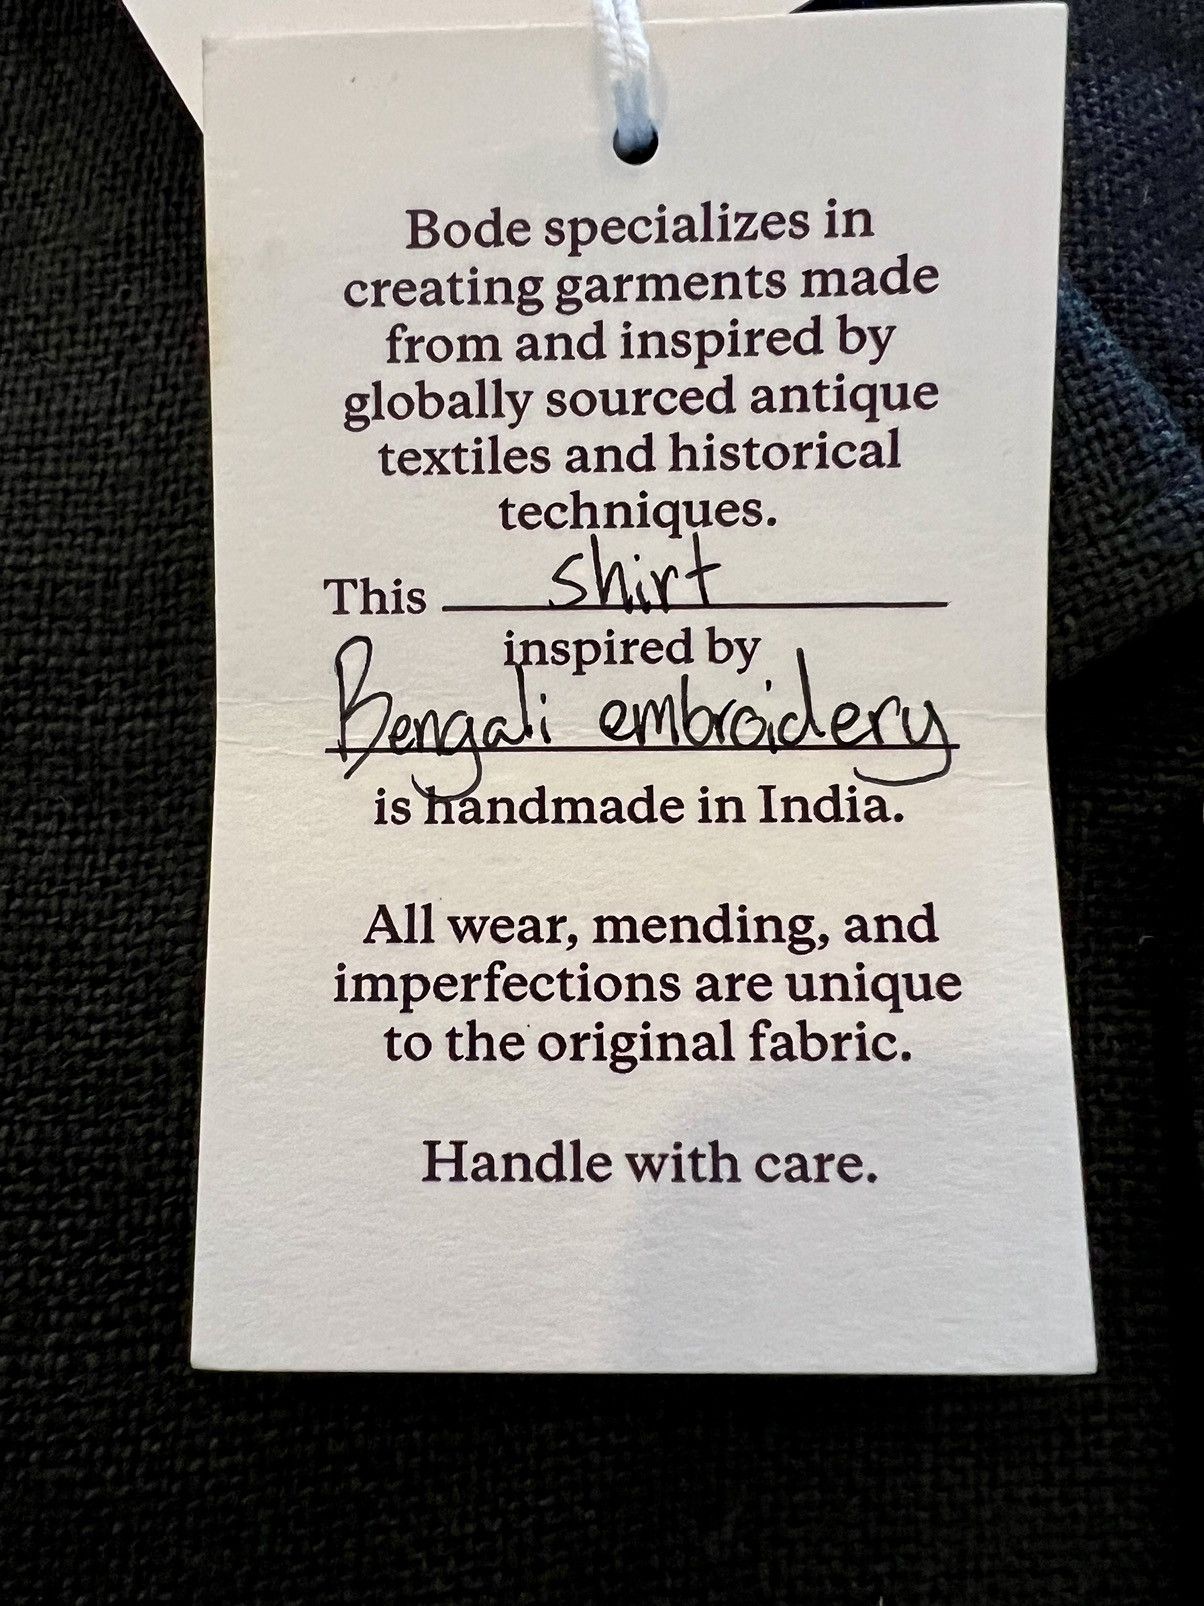 Bode specializes in
creating garments made
from and inspired by
globally sourced antique
textiles and historical
techniques.
This shirt
inspired by
Bengali embroidery
is handmade in India.
All wear, mending, and
imperfections are unique
to the original fabric.
Handle with care.